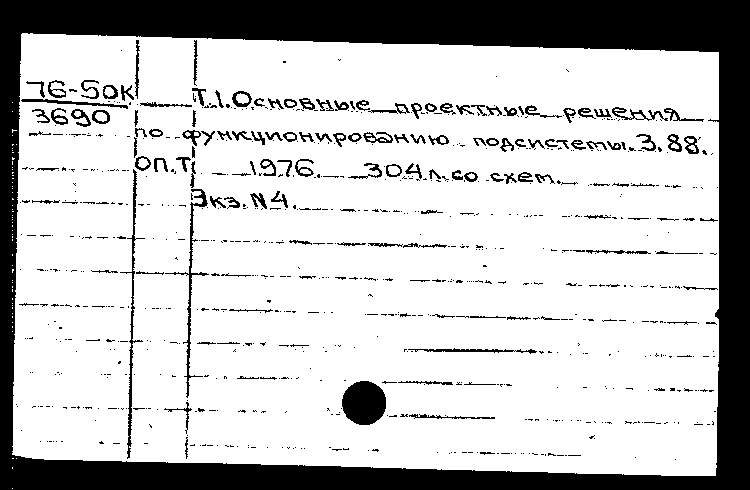 76-50К
3690
Т.1. Основные проектные решения
по функционированию подсистемы. 3.88.
ОП.Т 1976. 304 л. со схем.
Экз. N4.